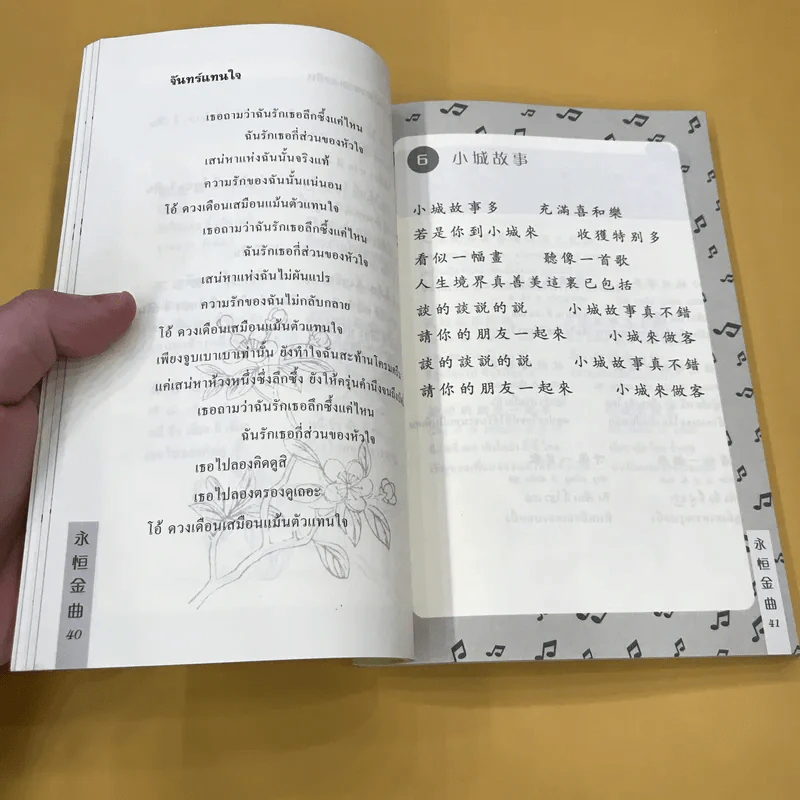 จันทร์แทนใจ
เธอถามว่าฉันรักเธอลึกซึ้งแค่ไหน
ฉันรักเธอกี่ส่วนของหัวใจ
เสน่หาแห่งฉันนั้นจริงแท้
ความรักของฉันนั้นแน่นอน
โอ้ ดวงเดือนเสมือนแม้นตัวแทนใจ
เธอถามว่าฉันรักเธอลึกซึ้งแค่ไหน
ฉันรักเธอกี่ส่วนของหัวใจ
เสน่หาแห่งฉันไม่ผันแปร
ความรักของฉันไม่กลับกลาย
โอ้ ดวงเดือนเสมือนแม้นตัวแทนใจ
เพียงจูบเบาเบาเท่านั้น ยังทำใจฉันสะท้าน
แค่เสน่หาห้วงหนึ่งซึ่งลึกซึ้ง ยังให้ครุ่นคำนึง
เธอถามว่าฉันรักเธอลึกซึ้งแค่ไหน
ฉันรักเธอกี่ส่วนของหัวใจ
เธอไปลองคิดดูสิ
เธอไปลองตรองดูเถอะ
โอ้ ดวงเดือนเสมือนแม้นตัวแทนใจ
永恒金曲
40
6 小城故事
小城故事多 充滿喜和樂
若是你到小城來 收獲特别多
看似一幅畫 聽像一首歌
人生境界真善美這裏已包括
談的談説的説 小城故事真不錯
請你的朋友一起來 小城來做客
談的談説的説 小城故事真不錯
請你的朋友一起來 小城來做客
永恒金曲
41